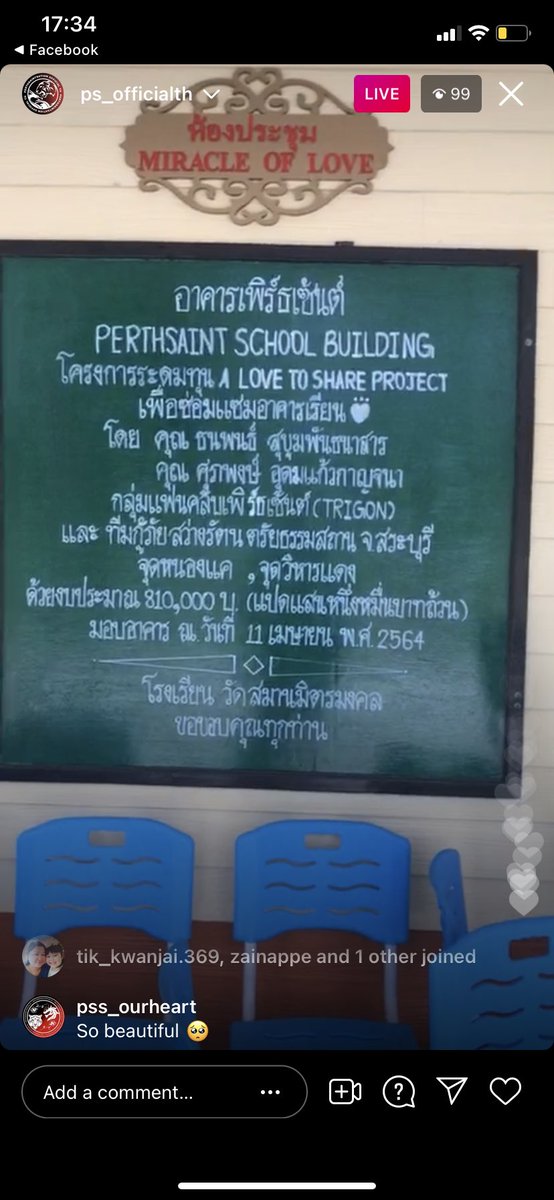 17:34
Facebook
ps_officialth
LIVE
99
ห้องประชุม
MIRACLE OF LOVE
อาคารเพิร์ธเซ้นต์
PERTHSAINT SCHOOL BUILDING
โครงการระดมทุน A LOVE TO SHARE PROJECT
เพื่อซ่อมแซมอาคารเรียน
โดย คุณ ธนพนธ์ สุขุมพันธนาสาร
คุณ ศุภพงษ์ อุดมแก้วกาญจนา
กลุ่มแฟนคลับเพิร์ธเซ้นต์ (TRIGON)
และ ทีมกู้ภัย สว่างรัตนตรัยธรรมสถาน จ.สระบุรี
จุดหนองแค , จุดวิหารแดง
ด้วยงบประมาณ 810,000 บ. (แปดแสนหนึ่งหมื่นบาทถ้วน)
มอบอาคาร ณ.วันที่ 11 เมษายน พ.ศ. 2564
โรงเรียน วัดสมานมิตรมงคล
ขอขอบคุณทุกท่าน
tik_kwanjai.369, zainappe and 1 other joined
pss_ourheart
So beautiful 🥺
Add a comment...